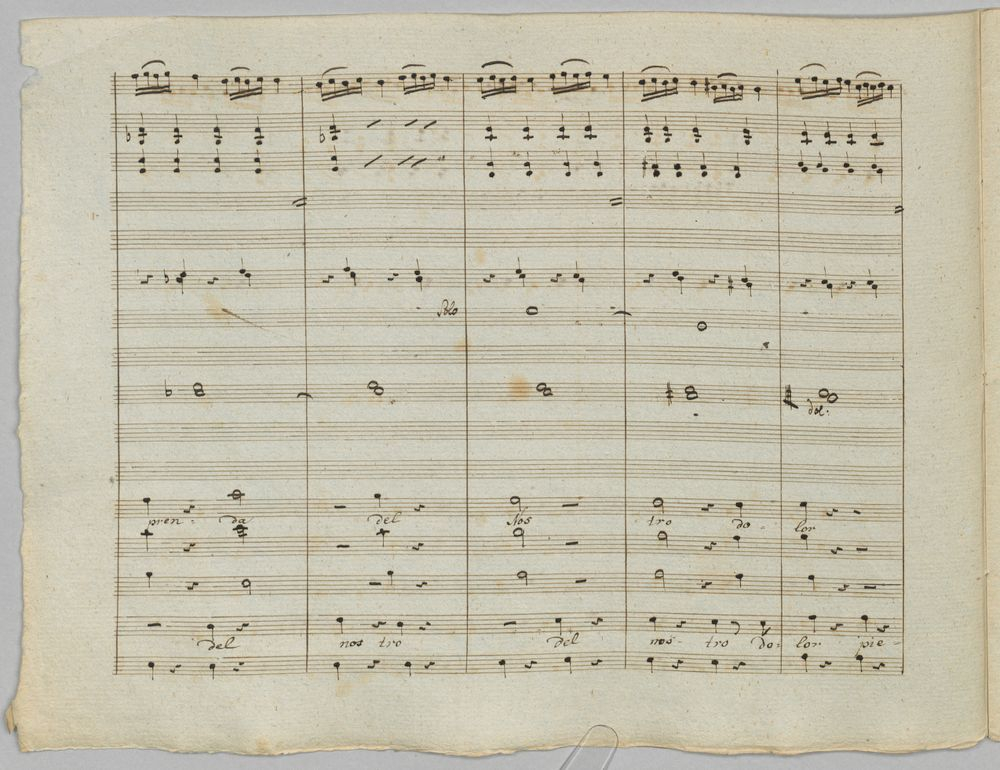 Solo
dol:
pren - da del Nos tro do - lor
del nos tro del nos - tro do - lor pie -